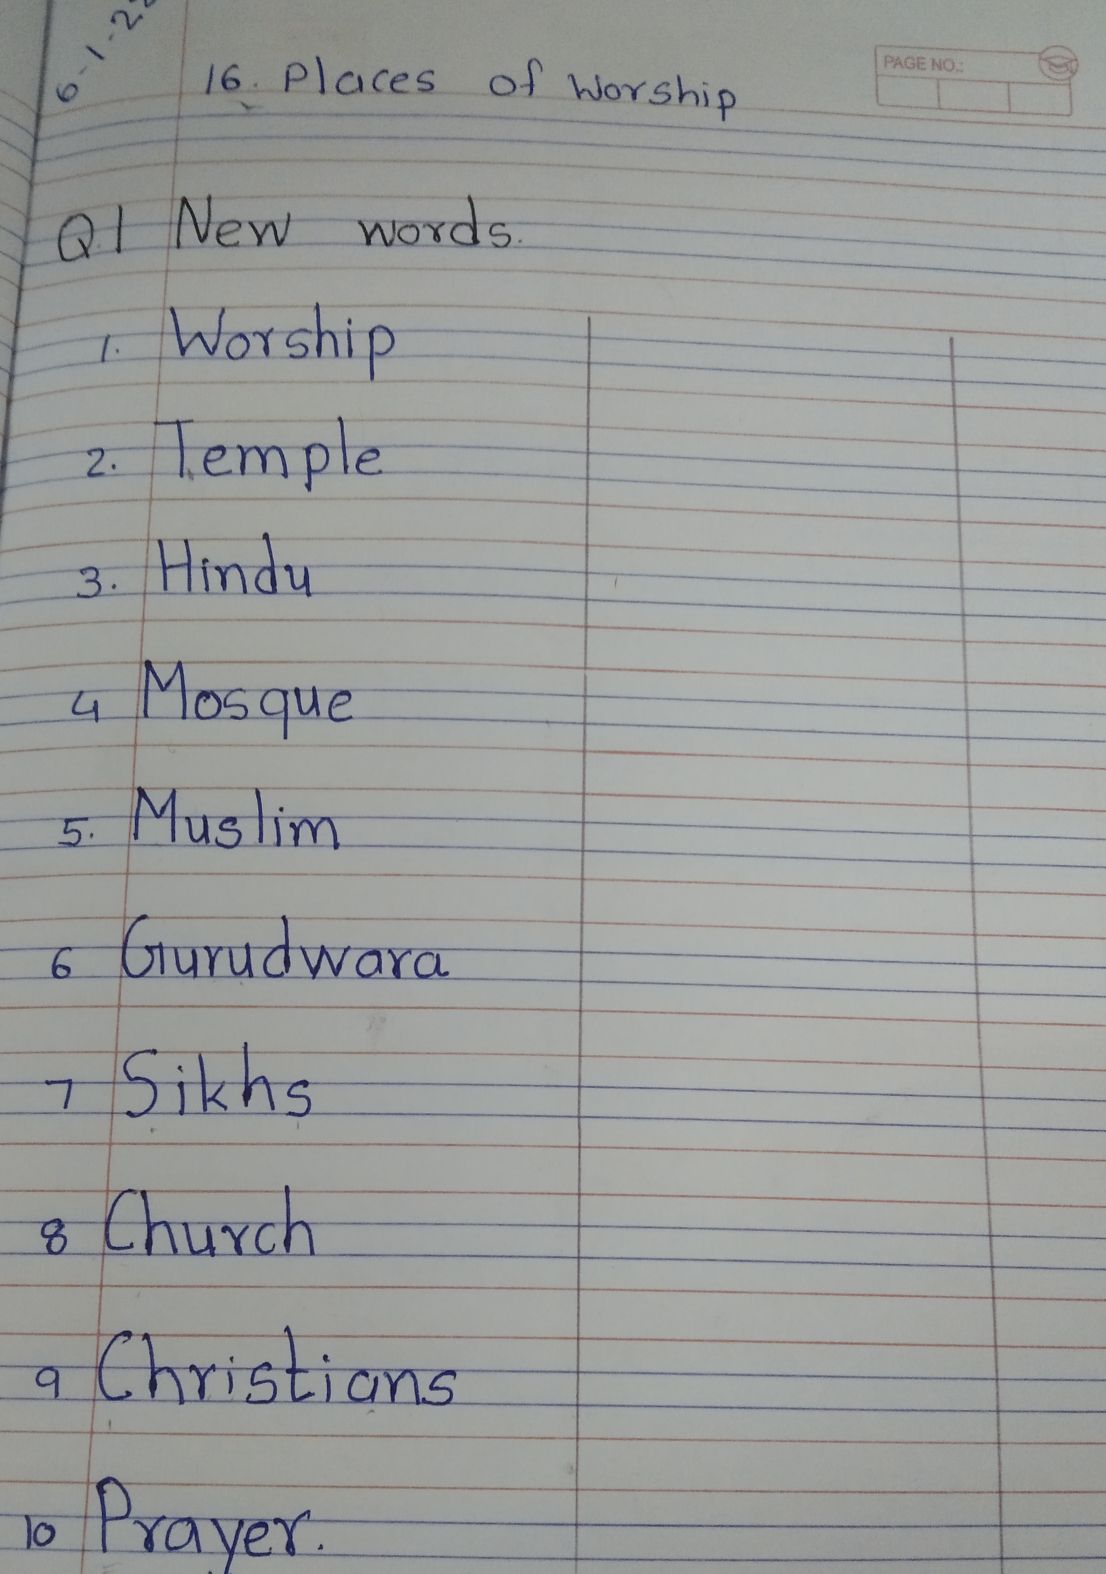 6-1-2
16. Places of Worship
PAGE NO.:
Q1 New words.
1. Worship
2. Temple
3. Hindu
4 Mosque
5. Muslim
6 Gurudwara
7 Sikhs
8 Church
9 Christians
10 Prayer.